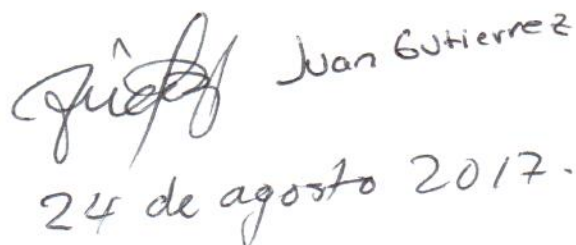 Juan Gutierrez
24 de agosto 2017.